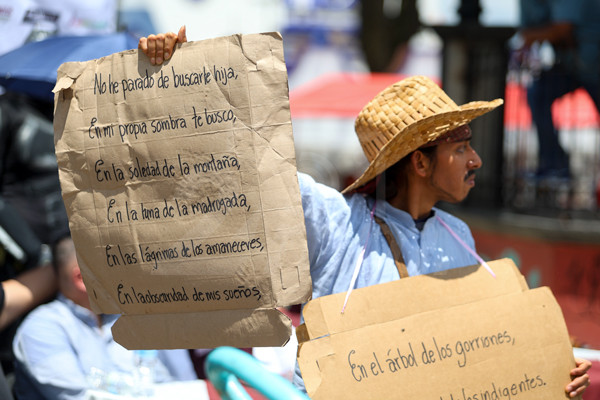 No he parado de buscarle hija,
En mi propia sombra te busco,
En la soledad de la montaña,
En la luna de la madrugada,
En las lágrimas de los amaneceres,
En la obscuridad de mis sueños,
En el árbol de los gorriones,
de los indigentes.